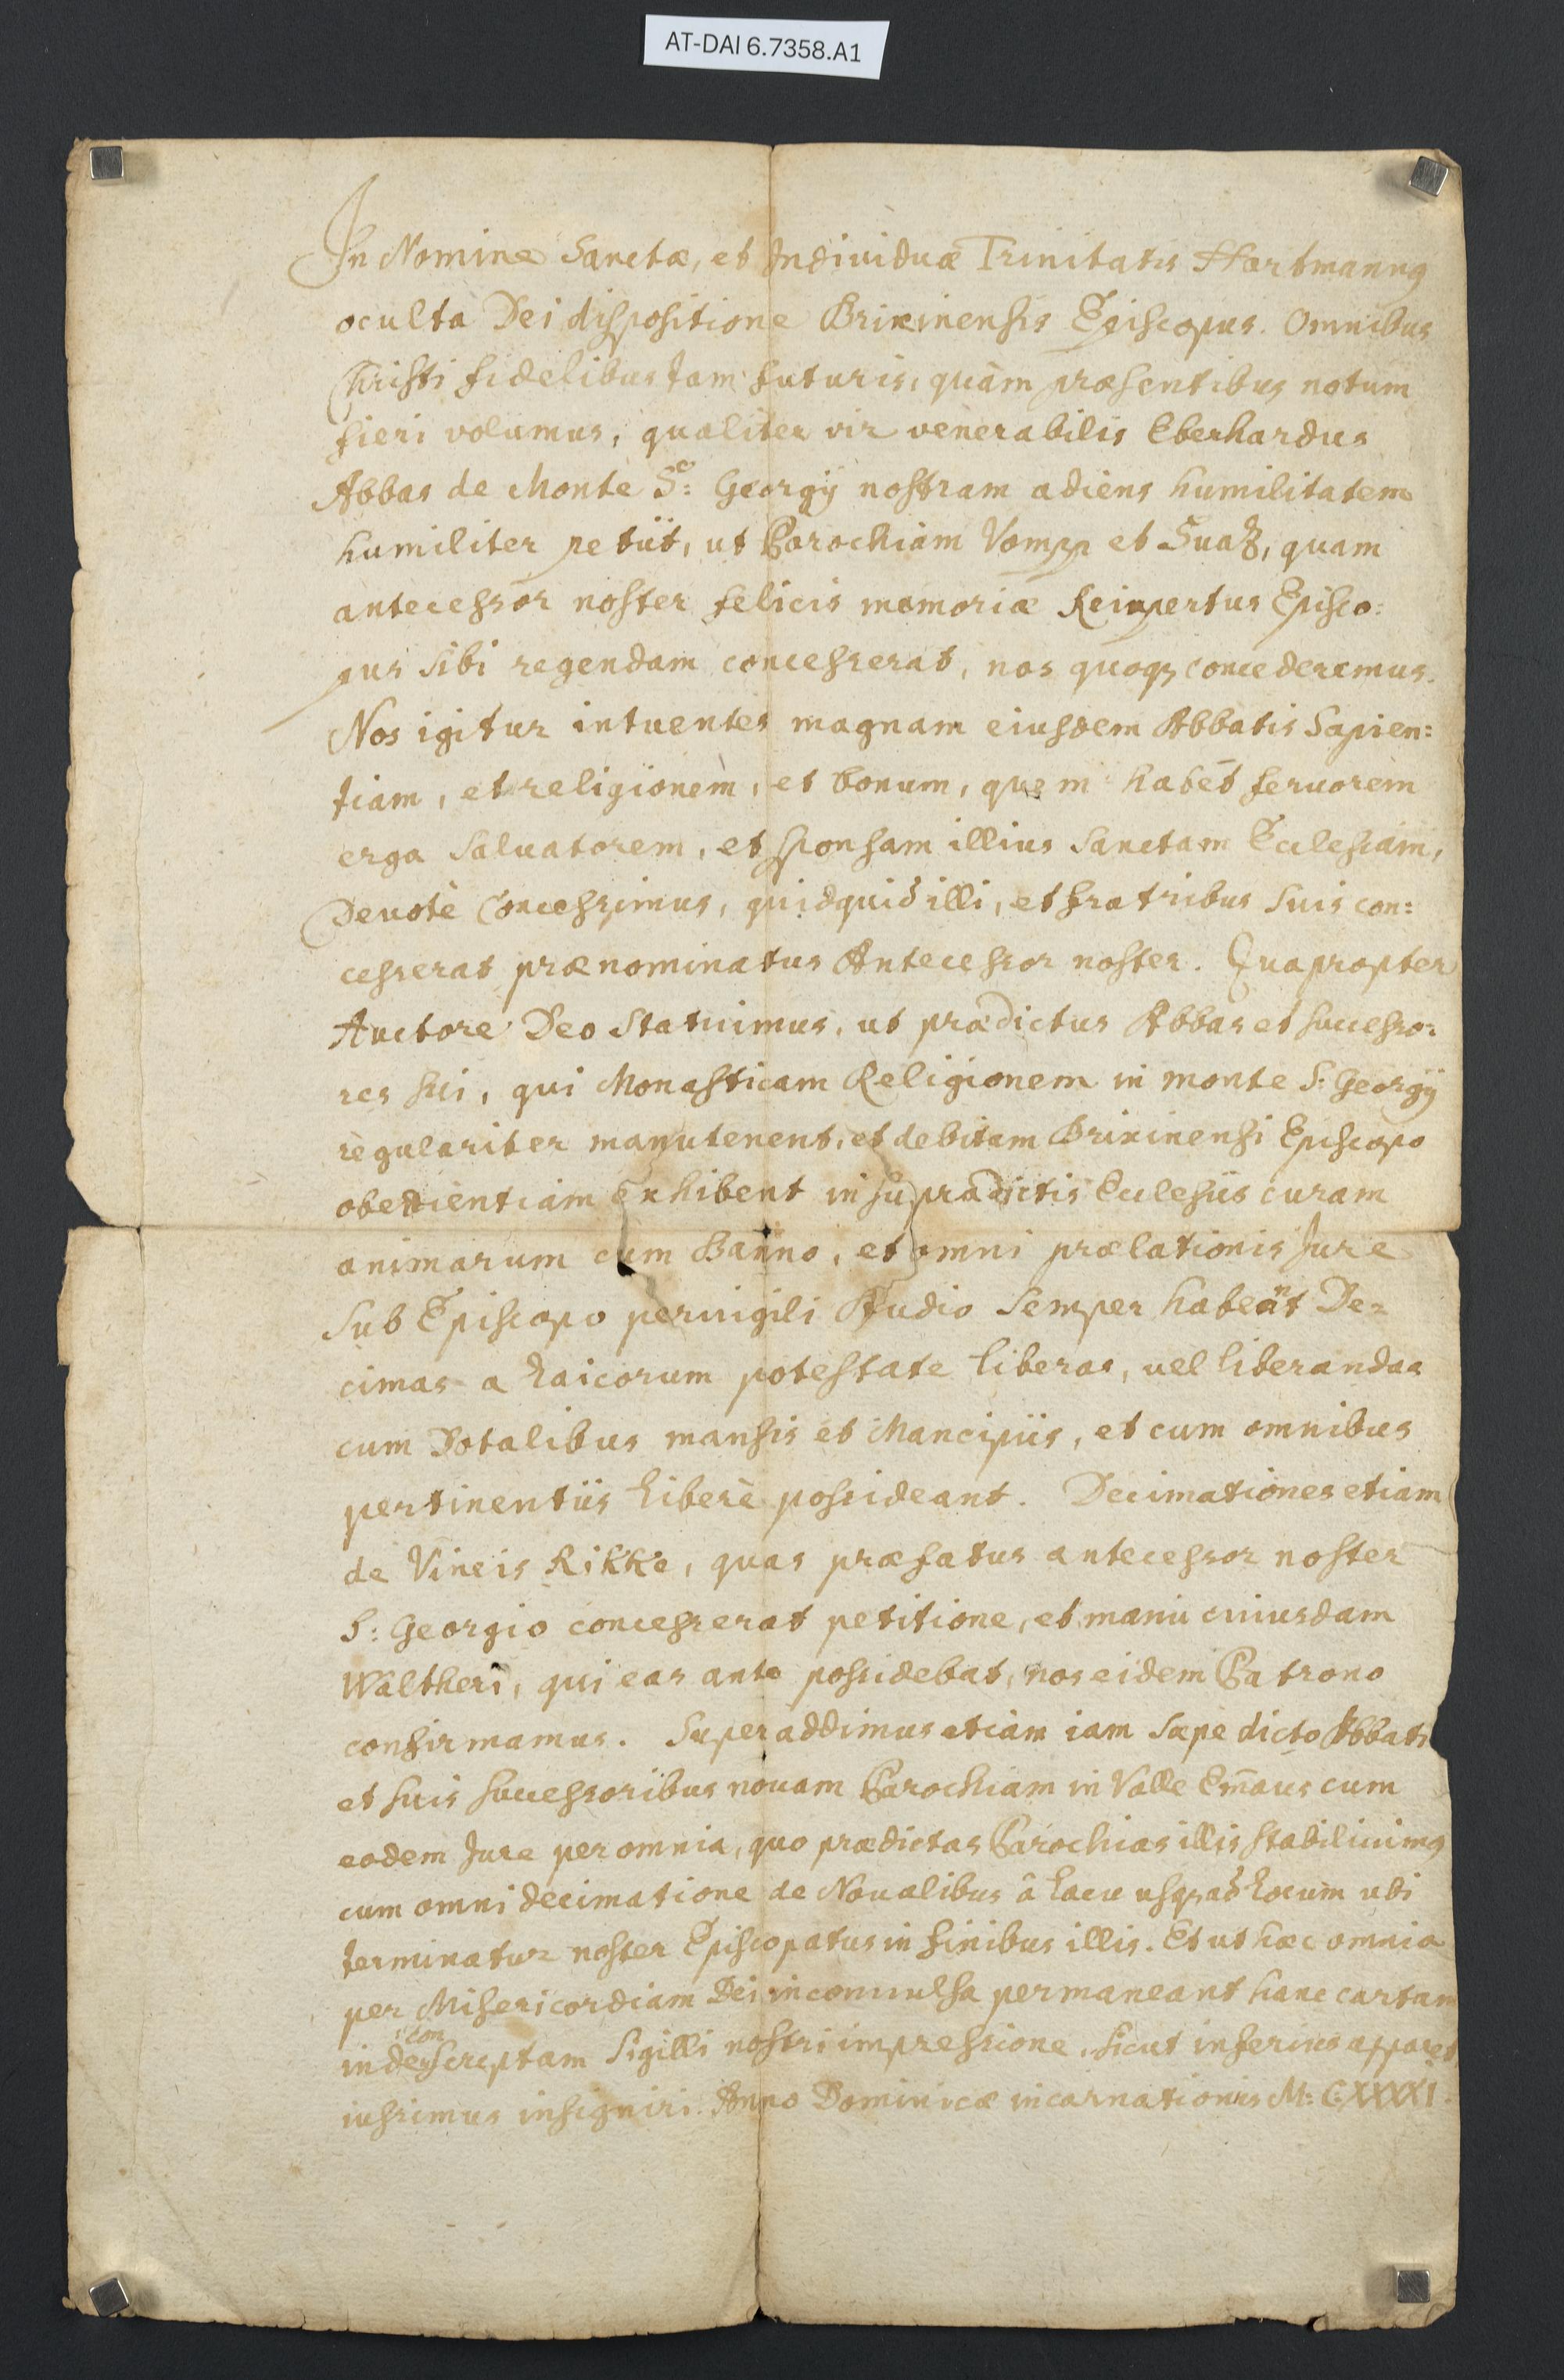 AT-DAI 6.7358.A1
In Nomine Sanctæ, et Indiuiduæ Trinitatis Hartmannꝯ
oculta Dei dispositione Brixinensis Episcopus. Omnibus
Christi fidelibus Jam futuris, quàm præsentibus notum
fieri volumus, qualiter vir venerabilis Eberhardus
Abbas de Monte S: Georgÿ nostram adiens humilitatem
humiliter petÿt, ut Parochiam Vomp et Suaz, quam
antecessor noster felicis memoriæ Reinpertus Episco:
pus sibi regendam concesserat, nos quoqꝫ concederemus.
Nos igitur intuentes magnam eiusdem Abbatis Sapien:
tiam, et religionem, et bonum, quem habet feruorem
erga Saluatorem, et sponsam illius Sanctam Ecclesiam,
Deuotè Concessimus, quidquid illi, et fratribus Suis con:
cesserat prænominatus Antecessor noster. Quapropter
Auctore Deo Statuimus, ut prædictus Abbas et successo:
res sui, qui Monasticam Religionem in monte S: Georgÿ
regulariter manutenent, et debitam Brixinensi Episcopo
obedientiam exhibent in supradictis Ecclesÿs curam
animarum cum Banno, et omni prælationis Jure
Sub Episcopo peruigili Studio Semper habeant De:
cimas a Laicorum potestate liberas, uel liberandas
cum Dotalibus mansis et Mancipÿs, et cum omnibus
pertinentÿs Liberè possideant. Decimationes etiam
de Vineis Rikke, quas præfatus antecessor noster
S: Georgio concesserat petitione, et manu cuiusdam
Waltheri, qui eas ante possidebat, nos eidem Patrono
confirmamus. Superaddimus etiam iam Sæpe dicto Abbati
et suis successoribus nouam Parochiam in Valle Em̄aus cum
eodem Jure per omnia, quo prædictas Parochias illis stabiliuimꝯ
cum omni decimatione de Noualibus â Lacu usqꝫ ad Locum ubi
terminatur noster Episcopatus in finibus illis. Et ut hæc omnia
per Misericordiam Dei inconuulsa permaneant hanc cartam
inde conscriptam Sigilli nostri impressione, sicut inferius apparet
iussimus insigniri. Anno Dominicæ incarnationis M: CXXXXI.